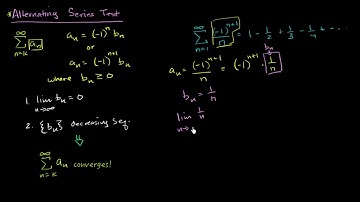 *Alternating Series Test
∞ Σ n=k a_n
a_n = (-1)^n b_n
or
a_n = (-1)^{n+1} b_n
where b_n ≥ 0
1. lim n→∞ b_n = 0
2. {b_n} decreasing seq.
⇓
∞ Σ n=k a_n converges!
∞ Σ n=1 (-1)^{n+1}/n = 1 - 1/2 + 1/3 - 1/4 + ...
b_n
a_n = (-1)^{n+1}/n = (-1)^{n+1} · 1/n
b_n = 1/n
lim 1/n
n→